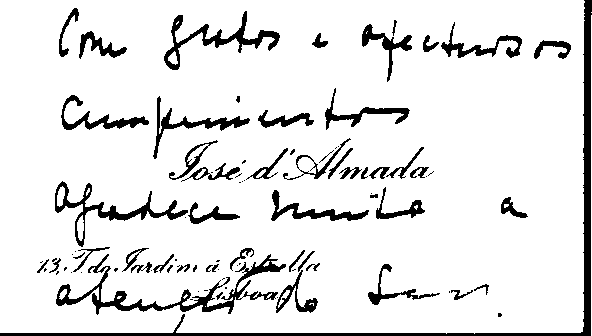 Com gratos e afectuosos
cumprimentos
José d'Almada
agradece muito a
13, T. do Jardim á Estrella
Lisboa
atenção do